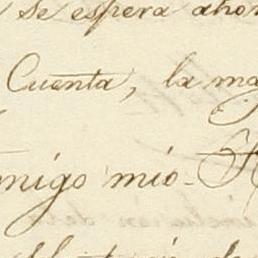 se espera ahor
Cuenta, la ma
migo mio-